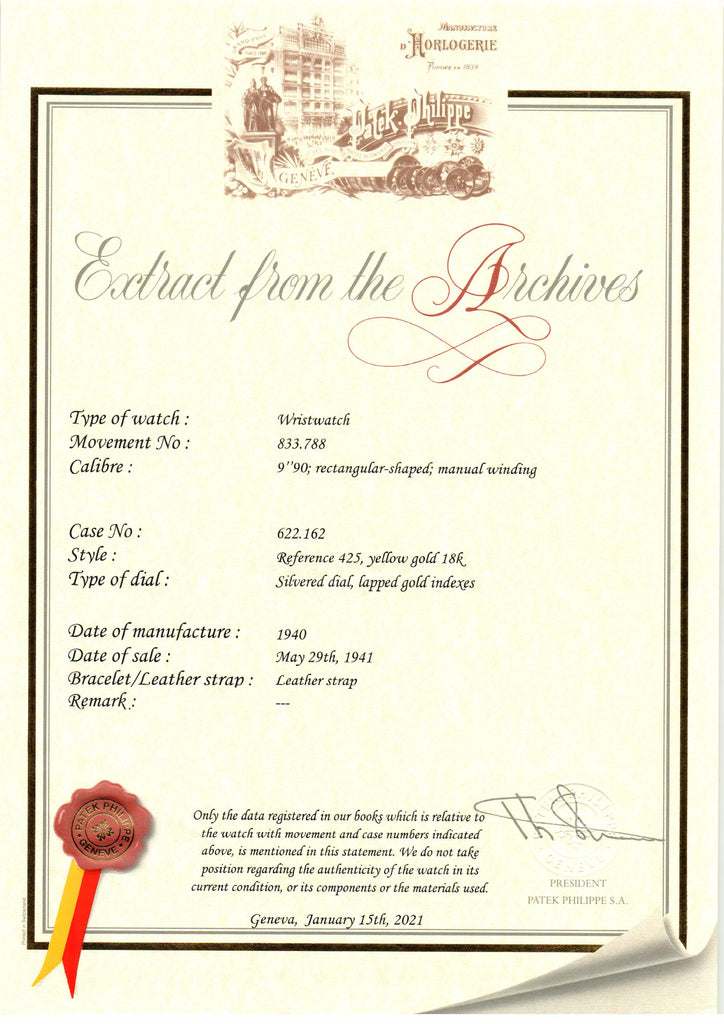 MANUFACTURE
D'HORLOGERIE
FONDÉE EN 1839
GRAND PRIX
Patek Philippe
GENÈVE
Extract from the Archives
Type of watch : Wristwatch
Movement No : 833.788
Calibre : 9’’90; rectangular-shaped; manual winding
Case No : 622.162
Style : Reference 425, yellow gold 18k
Type of dial : Silvered dial, lapped gold indexes
Date of manufacture : 1940
Date of sale : May 29th, 1941
Bracelet/Leather strap : Leather strap
Remark : ---
Only the data registered in our books which is relative to
the watch with movement and case numbers indicated
above, is mentioned in this statement. We do not take
position regarding the authenticity of the watch in its
current condition, or its components or the materials used.
Geneva, January 15th, 2021
PATEK PHILIPPE
GENEVE
PRESIDENT
PATEK PHILIPPE S.A.
Printed in Switzerland